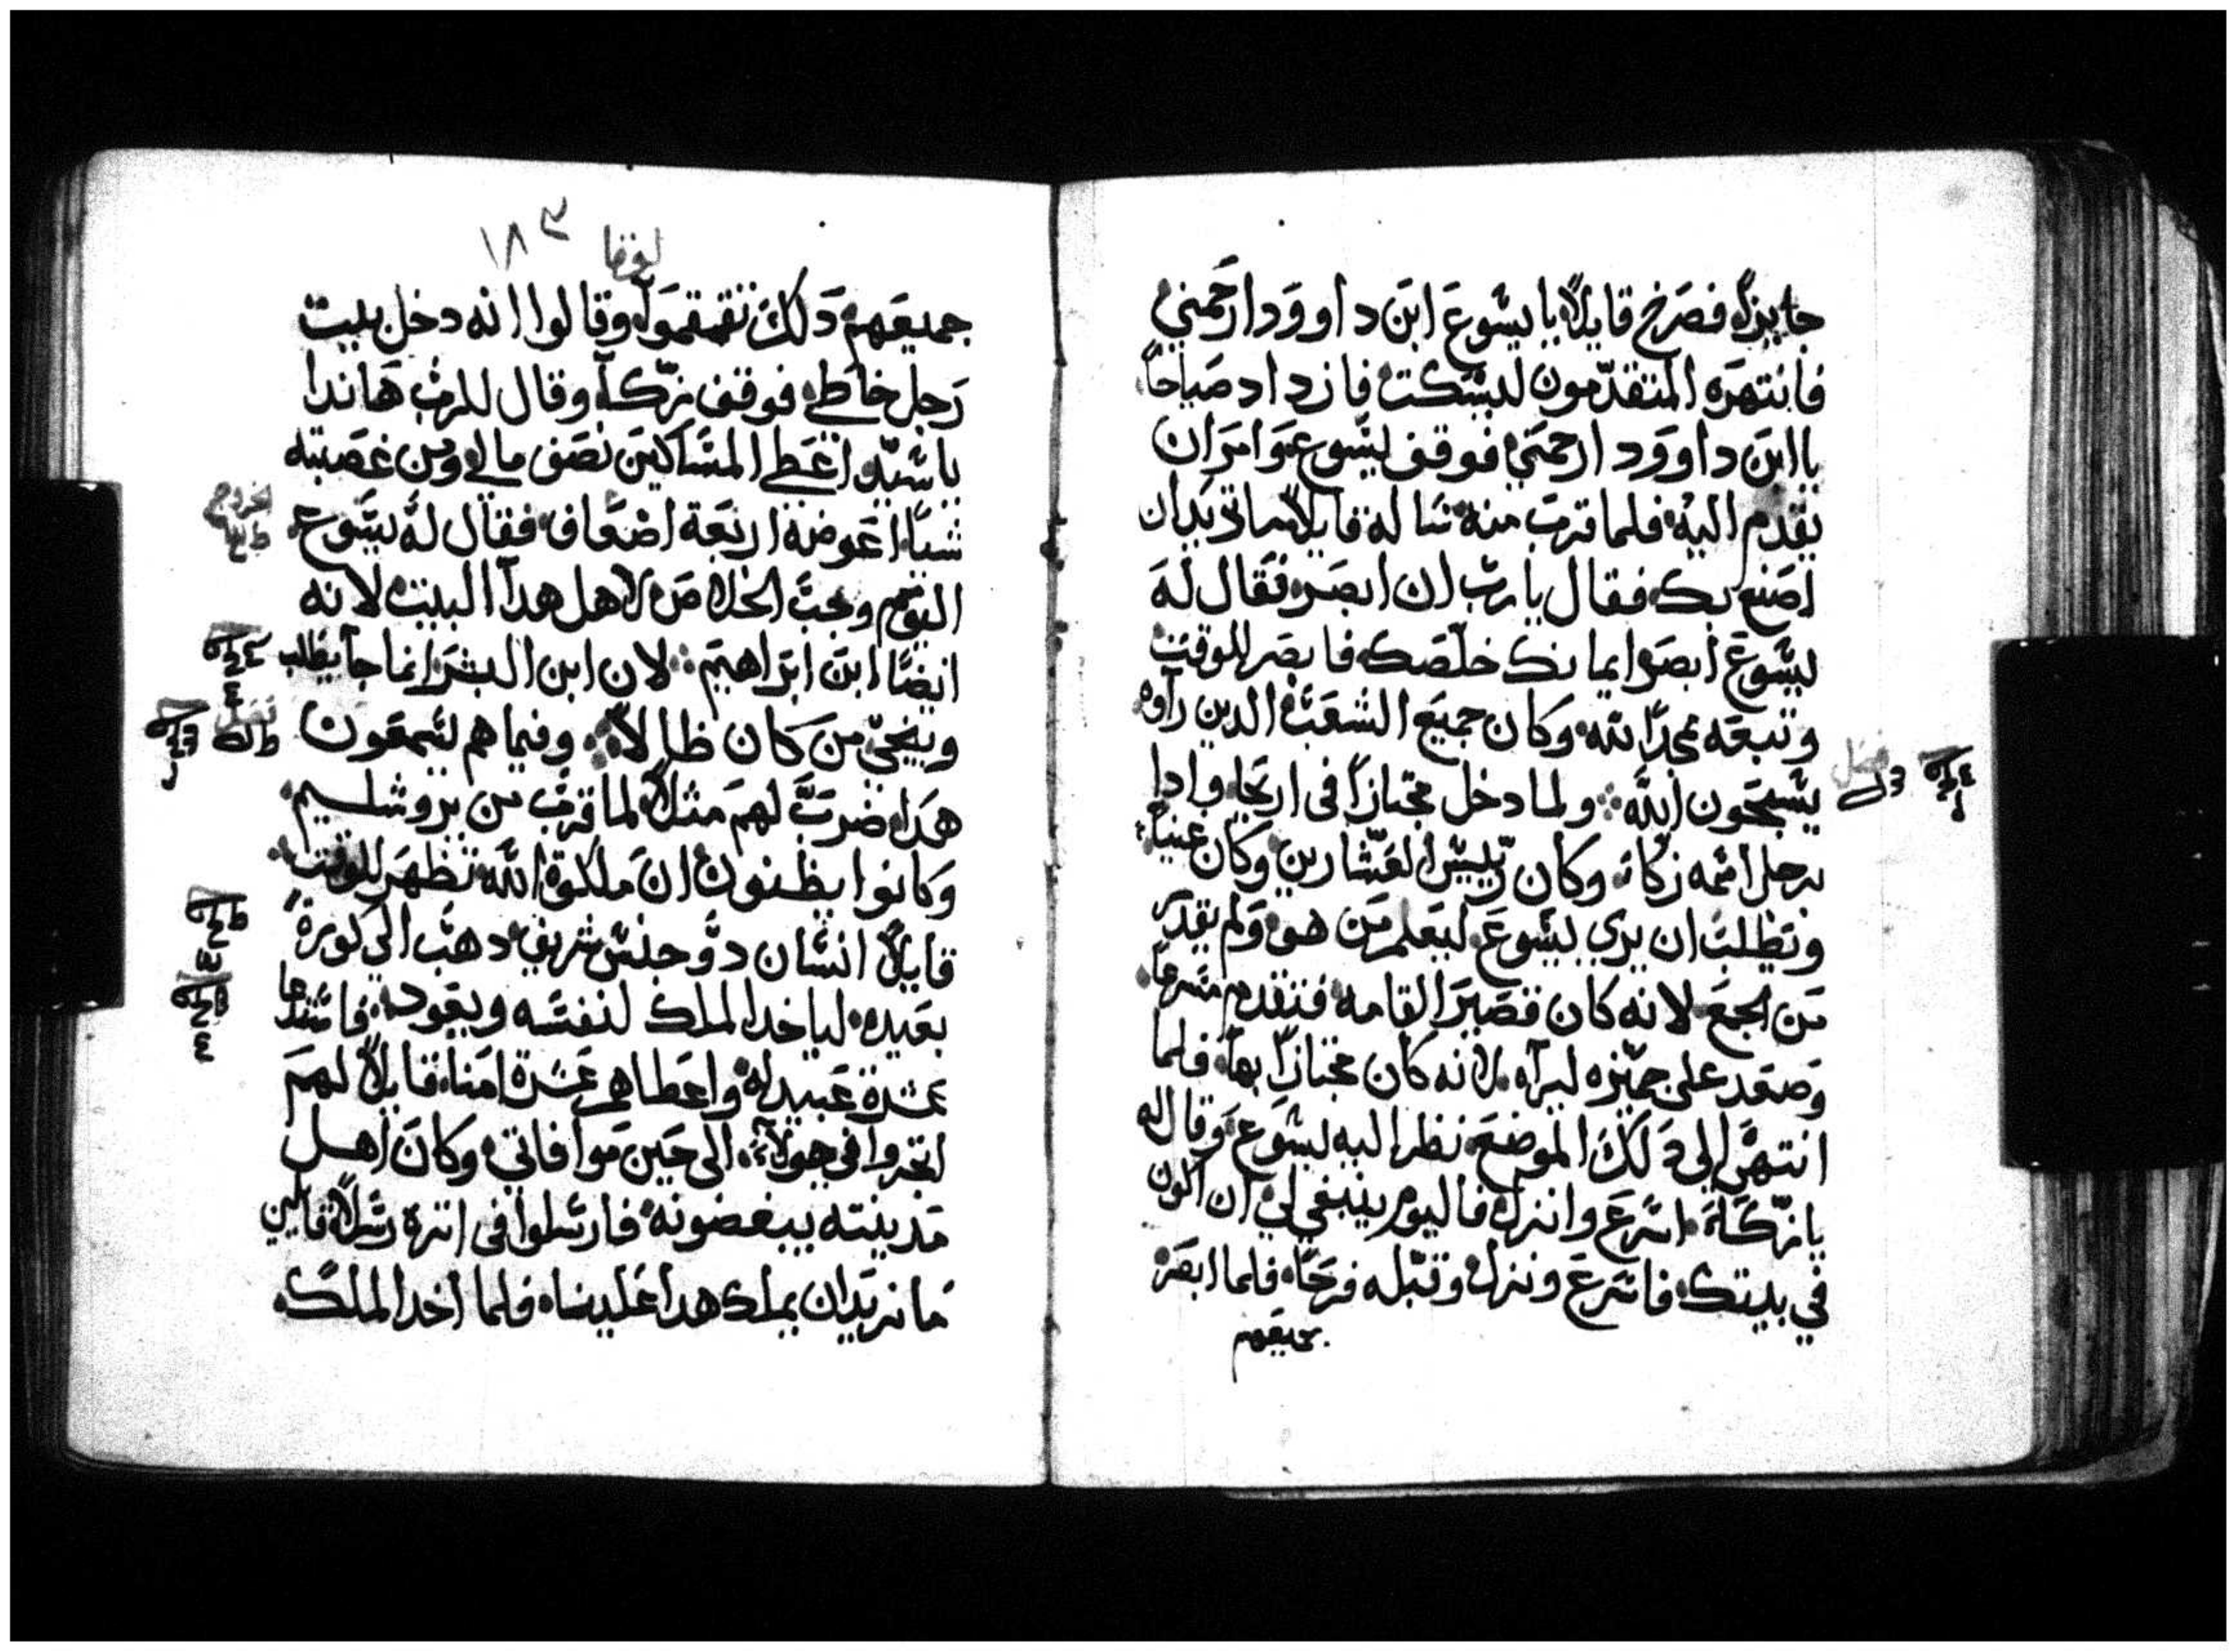 جايزاً فصرخ قايلاً يا يسوع ابن داوود ارحمني
فانتهره المتقدمون ليسكت فازداد صياحاً
يا ابن داوود ارحمني فوقف يسوع وامر ان
يقدم اليه فلما قرب منه ساله قايلاً ماتريد ان
اصنع بك فقال يا رب ان ابصر فقال له
يسوع ابصر ايمانك خلصك فابصر للوقت
وتبعه ممجداً لله وكان جميع الشعب الدين راوه
يسبحون الله ولما دخل مجتازاً في اريحا وادا
فصل
برجل اسمه زكا وكان رييس العشارين وكان غنياً
ويطلب ان يري يسوع ليعلم من هو ولم يقدر
من الجمع لانه كان قصير القامه فتقدم مسرعاً
وصعد على جميزه ليراه لانه كان مجتازاً بها فلما
انتهى الي دلك الموضع نظر اليه يسوع وقال له
يا زكا اسرع وانزل فاليوم ينبغي لي ان اكون
في بيتك فاسرع ونزل وقبله فرحاً فلما ابصر
جميعهم
لوقا ١٨٣
جميعهم دلك تقمقموا وقالوا انه دخل بيت
رجل خاطي فوقف زكا وقال للرب هاندا
يا سيد اعطي المساكين نصف مالي ومن غصبته
شياً اعوضه اربعة اضعاف فقال له يسوع
اليوم وجب الخلاص لاهل هدا البيت لانه
ايضاً ابن ابراهيم لان ابن البشر انما جا يطلب
وينجي من كان ضالاً وفيما هم يسمعون
هدا ضرب لهم مثلاً لما قرب من يروشليم
وكانوا يظنون ان ملكوة الله تظهر للوقت
قايلاً انسان دو جنس شريف دهب الي كورة
بعيده لياخد الملك لنفسه ويعود فاستدعا
عشرة عبيد له واعطاهم عشرة امنا قايلاً لهم
اتجروا في هولا الى حين موافاتي وكان اهل
مدينته يبغضونه فارسلوا في اثره رسلاً قايلين
ما نريد ان يملك هدا علينا فلما اخد الملك